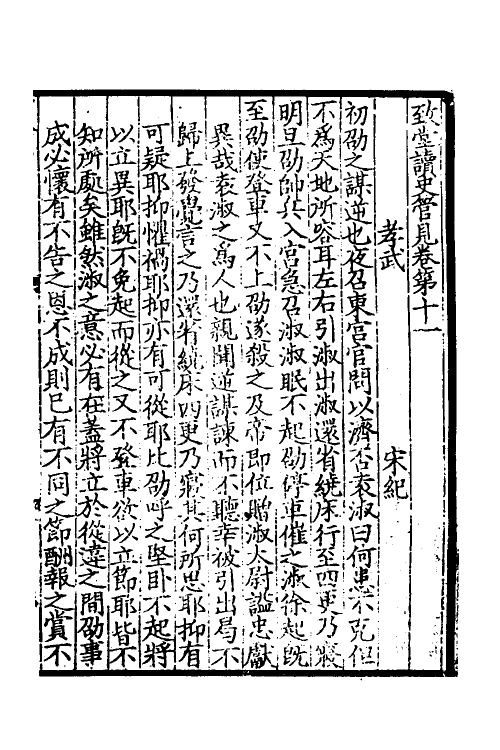 致堂讀史管見卷第十一
孝武　宋紀
初劭之謀逆也夜召東宮官問以濟否袁淑曰何患不克但
不為天地所容耳左右引淑出淑還省繞床行至四更乃寢
明旦劭帥兵入宮急召淑淑眠不起劭停車催之淑徐起旣
至劭使登車又不上劭遂殺之及帝即位贈淑大尉諡忠獻
異哉袁淑之為人也親聞逆謀諫而不聽幸被引出局不
歸上發覺言之乃還省繞床四更乃寢其何所思耶抑有
可疑耶抑懼禍耶抑亦有可從耶比劭呼之堅卧不起將
以立異耶旣不免起而從之又不登車欲以立節耶皆不
知所處矣雖然淑之意必有在蓋將立於從違之間劭事
成必懷有不告之恩不成則已有不同之節酬報之賞不